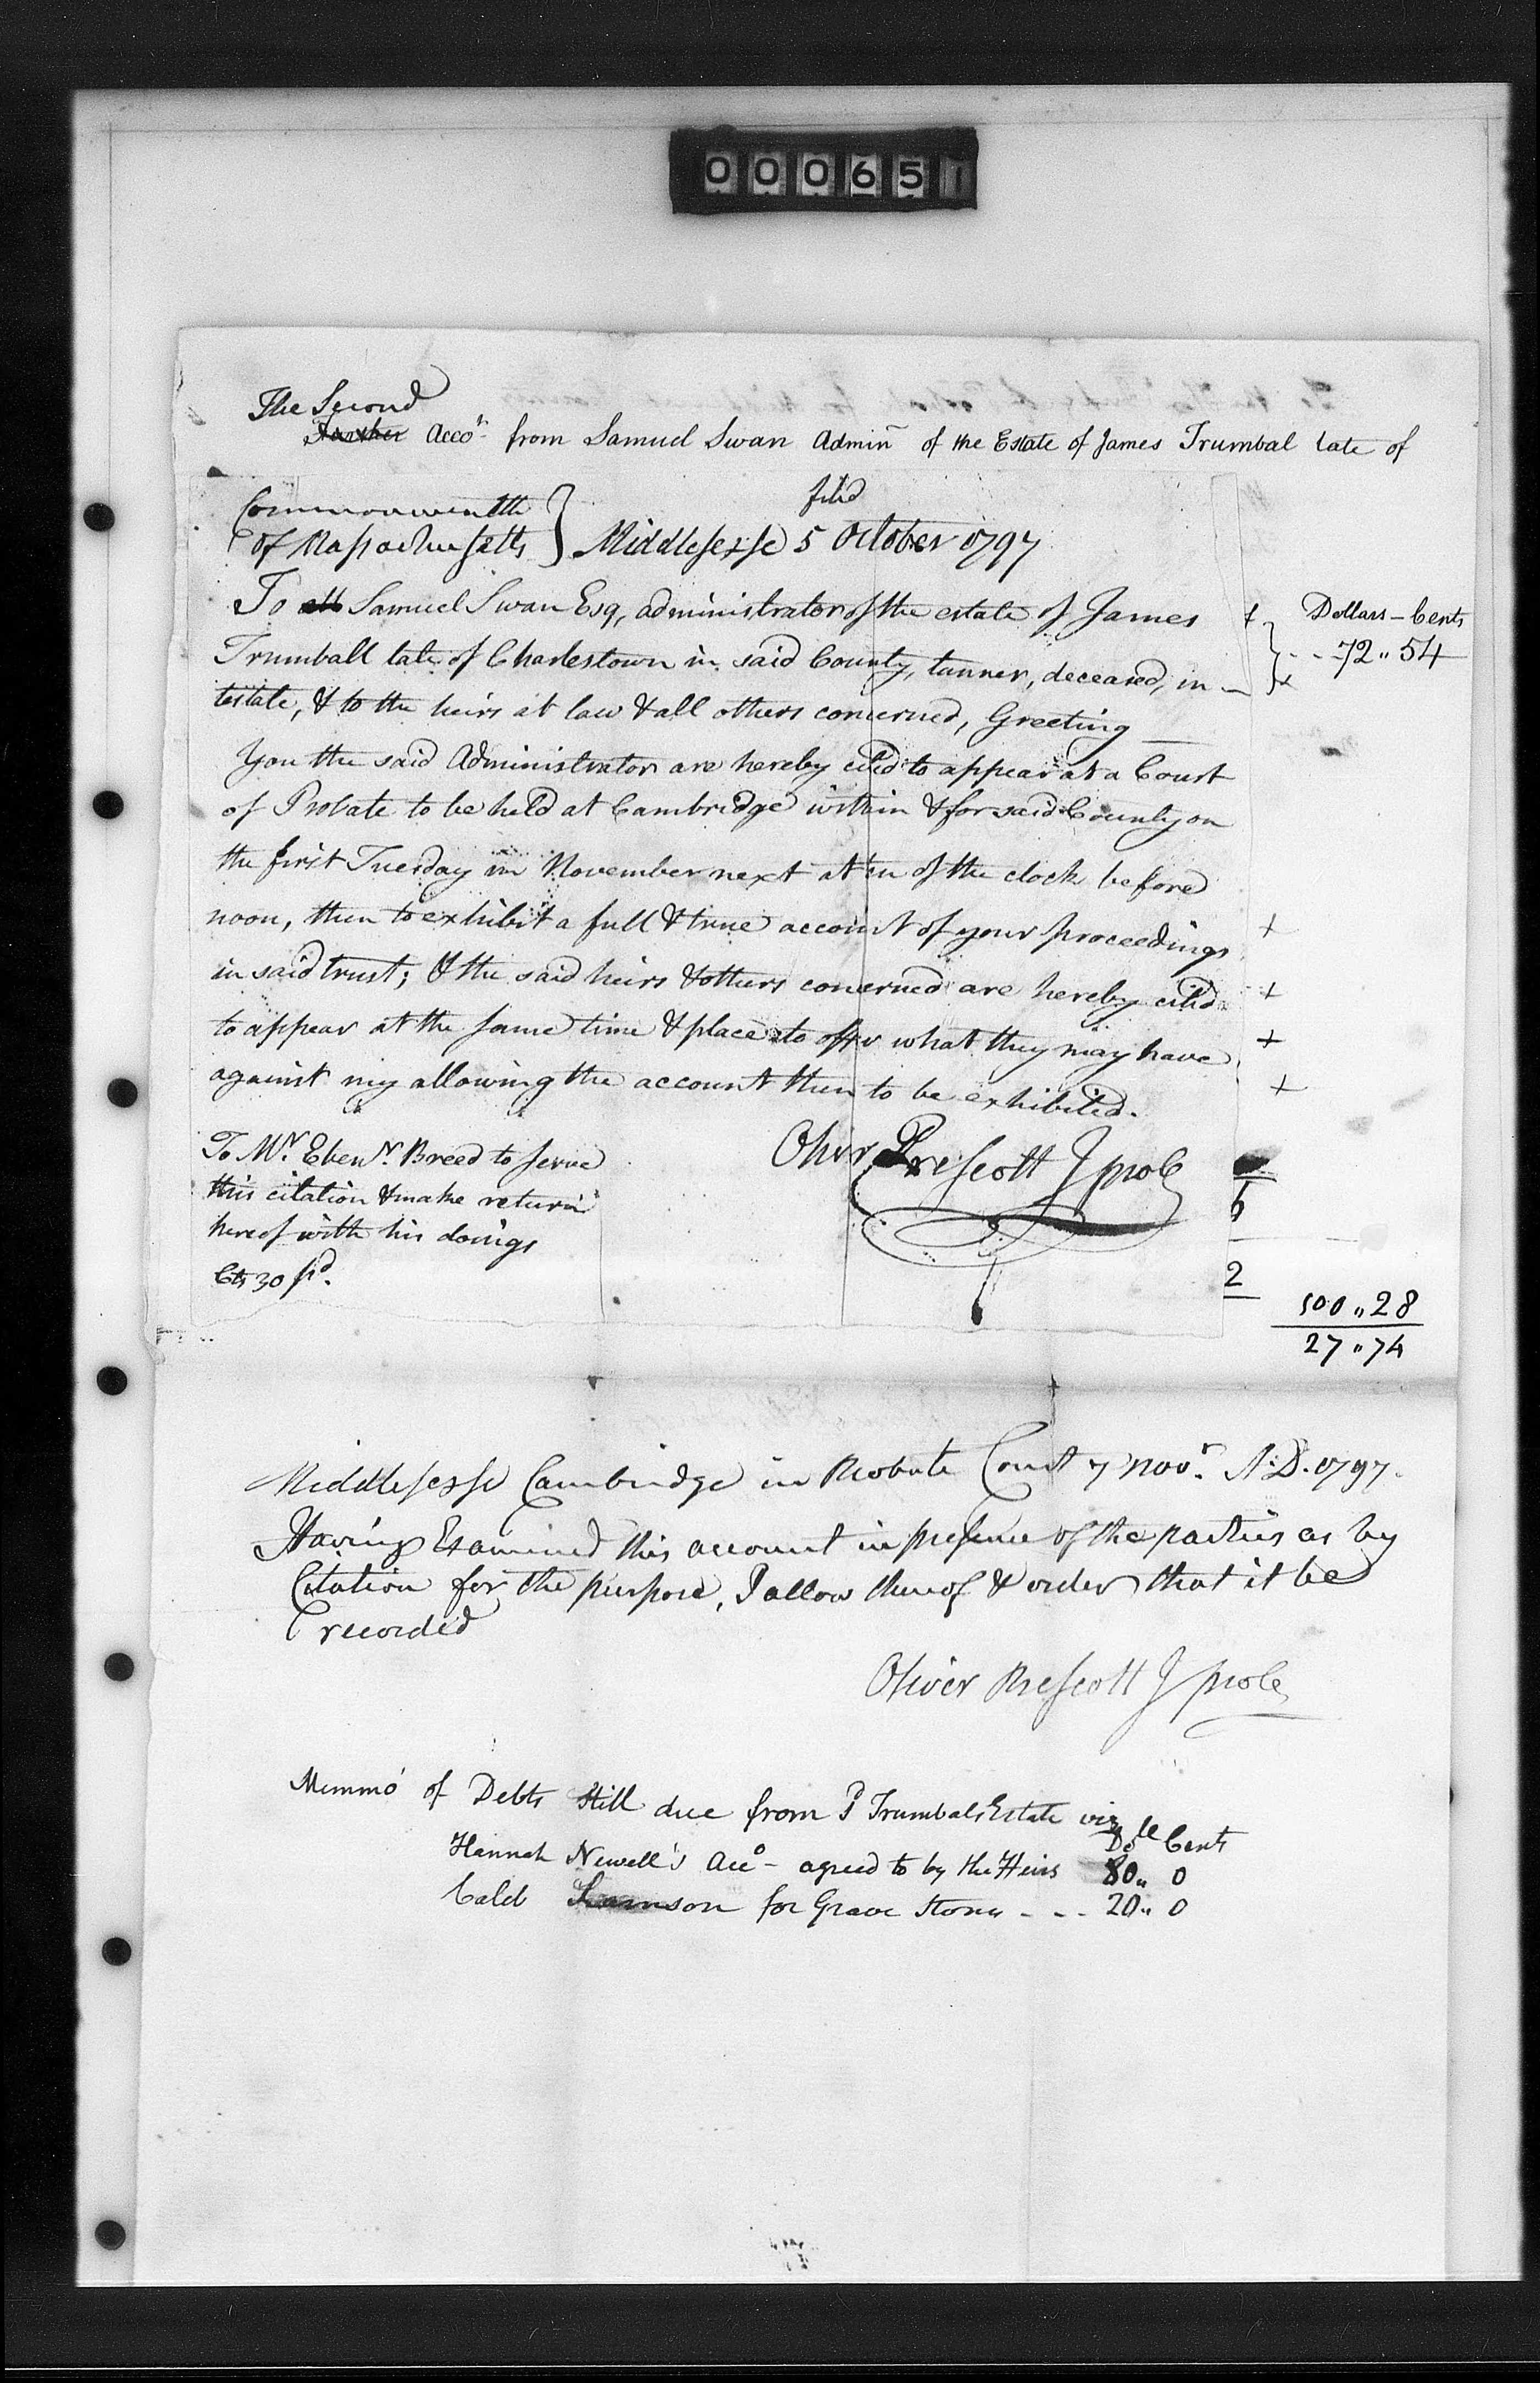 00065
The Second
Further Acco.t from Samuel Swan Admin of the Estate of James Trumbal late of
filed
Commonwealth
of Massachusetts } Middlesex ss 5 October 1797
To all Samuel Swan Esq, administrator of the estate of James
Trumball late of Charlestown in said County, tanner, deceased, in-
testate, & to the heirs at law & all others concerned, Greeting
Dollars - Cents
72 .. 54
You the said Administrator are hereby cited to appear at a Court
of Probate to be held at Cambridge within & for said County on
the first Tuesday in November next at ten of the clock before
noon, then to exhibit a full & true account of your proceedings
in said trust; & the said heirs & others concerned are hereby cited
to appear at the same time & place to offer what they may have
against my allowing the account then to be exhibited.
Olivr Prescott J prob
To Mr. Ebenr. Breed to serve
this citation & make return
hereof with his doings
Cts 30 pd.
6
2
100 .. 28
27 .. 74
Middlesex ss Cambridge in Probate Court 7 Novr. A.D. 1797.
Having Examined this account in presence of the parties as by
Citation for the purpose, I allow thereof & order that it be
recorded
Oliver Prescott J prob
Memmo of Debts still due from Trumbals Estate viz
Doll Cents
Hannah Newell's Acco - agreed to by the Heirs 80 .. 0
Caleb Lamson for Grave Stones - - - 20 .. 0